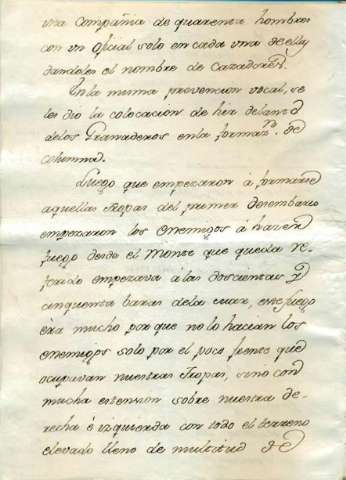 una compañia de quarenta hombres
con un oficial solo en cada una de ellas
dandoles el nombre de Cazadores.
En la misma prevencion vocal, se
les dio la colocacion de hir delante
de los Granaderos en la formaz.n de
columna.
Luego que empezaron á formarse
aquellas tropas del primer desembarco
empezaron los enemigos á hazer
fuego desde el Monte que queda re-
ferido empezava á las doscientas y
cinquenta baras de la mar, este fuego
era mucho por que no lo hacian los
enemigos solo por el poco frente que
ocupavan nuestras tropas, sino con
mucha estension sobre nuestra de-
recha é izquierda con todo el terreno
elevado lleno de multitud de